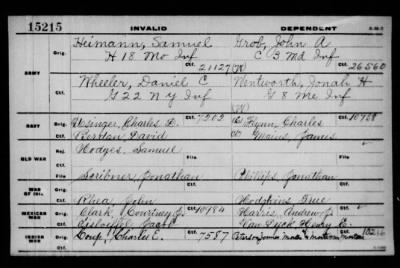 15215 INVALID DEPENDENT
Orig. Heimann, Samuel Grob, John A
H 18 Mo Inf C 3 Md Inf
Ctf. 21127 (W) Ctf. 26560
ARMY
Wheeler, Daniel C Wentworth, Jonah H
Orig. G 22 N Y Inf G 8 Me Inf
Ctf. (W) Ctf.
NAVY Orig. Charles D. 7202 Flynn, Charles 10758
Ctf. David Mains, James
OLD WAR Rej. Hodges, Samuel
File File
WAR OF 1812 Scribner, Jonathan Phillips, Jonathan
Rhea, John Hodgkins, True
MEXICAN WAR Orig. Clark, Courtney J. 10984 Harris, Andrew J.
Ctf. Jacob Van Dyck, Henry C.
INDIAN WAR Orig. Coup, Charles E. 7587
Ctf. Ctf.